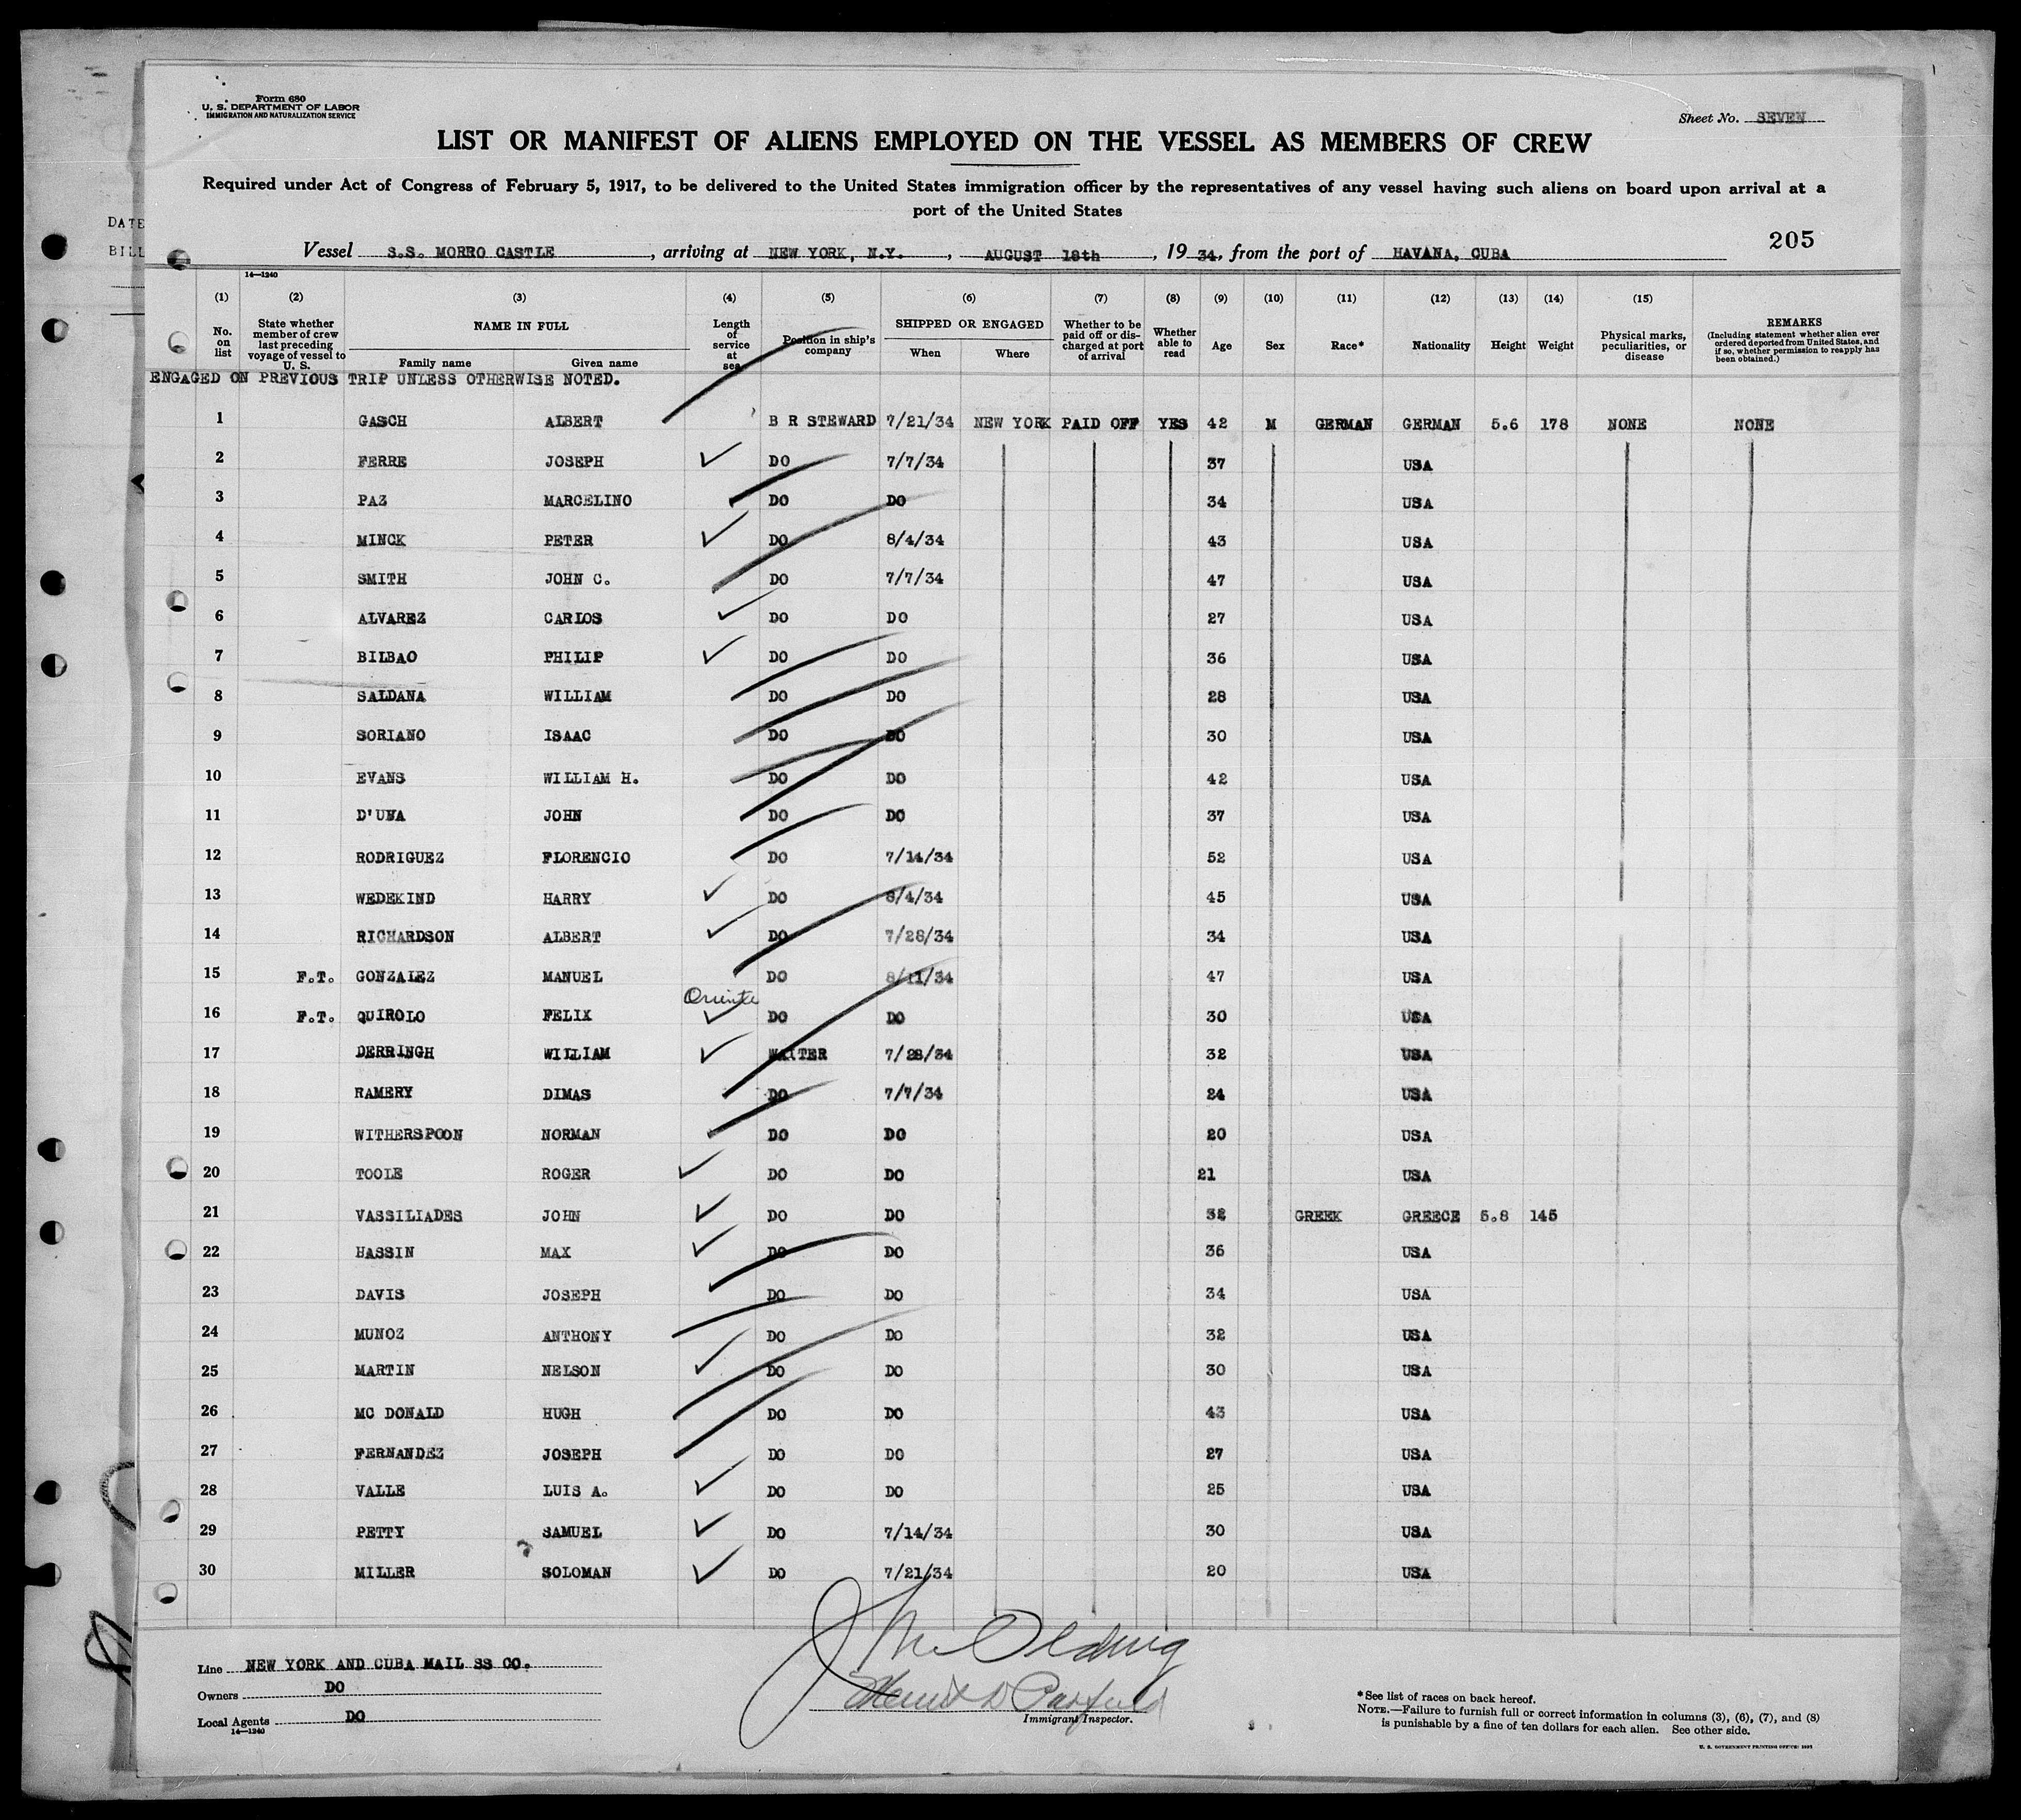 Form 680
U. S. DEPARTMENT OF LABOR
IMMIGRATION AND NATURALIZATION SERVICE
Sheet No. SEVEN
LIST OR MANIFEST OF ALIENS EMPLOYED ON THE VESSEL AS MEMBERS OF CREW
Required under Act of Congress of February 5, 1917, to be delivered to the United States immigration officer by the representatives of any vessel having such aliens on board upon arrival at a
port of the United States
DATE
BILL
205
Vessel S.S. MORRO CASTLE, arriving at NEW YORK, N.Y., AUGUST 18th, 1934, from the port of HAVANA, CUBA
14—1240
(1) (2) (3) (4) (5) (6) (7) (8) (9) (10) (11) (12) (13) (14) (15)
No. on list
State whether member of crew last preceding voyage of vessel to U. S.
NAME IN FULL
Family name Given name
Length of service at sea
Position in ship's company
SHIPPED OR ENGAGED
When Where
Whether to be paid off or discharged at port of arrival
Whether able to read
Age
Sex
Race*
Nationality
Height
Weight
Physical marks, peculiarities, or disease
REMARKS
(Including statement whether alien ever ordered deported from United States, and if so, whether permission to reapply has been obtained.)
ENGAGED ON PREVIOUS TRIP UNLESS OTHERWISE NOTED.
1 GASCH ALBERT B R STEWARD 7/21/34 NEW YORK PAID OFF YES 42 M GERMAN GERMAN 5.6 178 NONE NONE
2 FERRE JOSEPH DO 7/7/34 37 USA
3 PAZ MARCELINO DO DO 34 USA
4 MINCK PETER DO 8/4/34 43 USA
5 SMITH JOHN C. DO 7/7/34 47 USA
6 ALVAREZ CARLOS DO DO 27 USA
7 BILBAO PHILIP DO DO 36 USA
8 SALDANA WILLIAM DO DO 28 USA
9 SORIANO ISAAC DO DO 30 USA
10 EVANS WILLIAM H. DO DO 42 USA
11 D'UVA JOHN DO DO 37 USA
12 RODRIGUEZ FLORENCIO DO 7/14/34 52 USA
13 WEDEKIND HARRY DO 8/4/34 45 USA
14 RICHARDSON ALBERT DO 7/28/34 34 USA
15 F.T. GONZALEZ MANUEL DO 8/11/34 47 USA
Oriente
16 F.T. QUIROLO FELIX DO DO 30 USA
17 DERRINGH WILLIAM WAITER 7/28/34 32 USA
18 RAMERY DIMAS DO 7/7/34 24 USA
19 WITHERSPOON NORMAN DO DO 20 USA
20 TOOLE ROGER DO DO 21 USA
21 VASSILIADES JOHN DO DO 32 GREEK GREECE 5.8 145
22 HASSIN MAX DO DO 36 USA
23 DAVIS JOSEPH DO DO 34 USA
24 MUNOZ ANTHONY DO DO 32 USA
25 MARTIN NELSON DO DO 30 USA
26 MC DONALD HUGH DO DO 43 USA
27 FERNANDEZ JOSEPH DO DO 27 USA
28 VALLE LUIS A. DO DO 25 USA
29 PETTY SAMUEL DO 7/14/34 30 USA
30 MILLER SOLOMAN DO 7/21/34 20 USA
Line NEW YORK AND CUBA MAIL SS CO.
Owners DO
Local Agents DO
14—1240
Immigrant Inspector.
*See list of races on back hereof.
NOTE.—Failure to furnish full or correct information in columns (3), (6), (7), and (8)
is punishable by a fine of ten dollars for each alien. See other side.